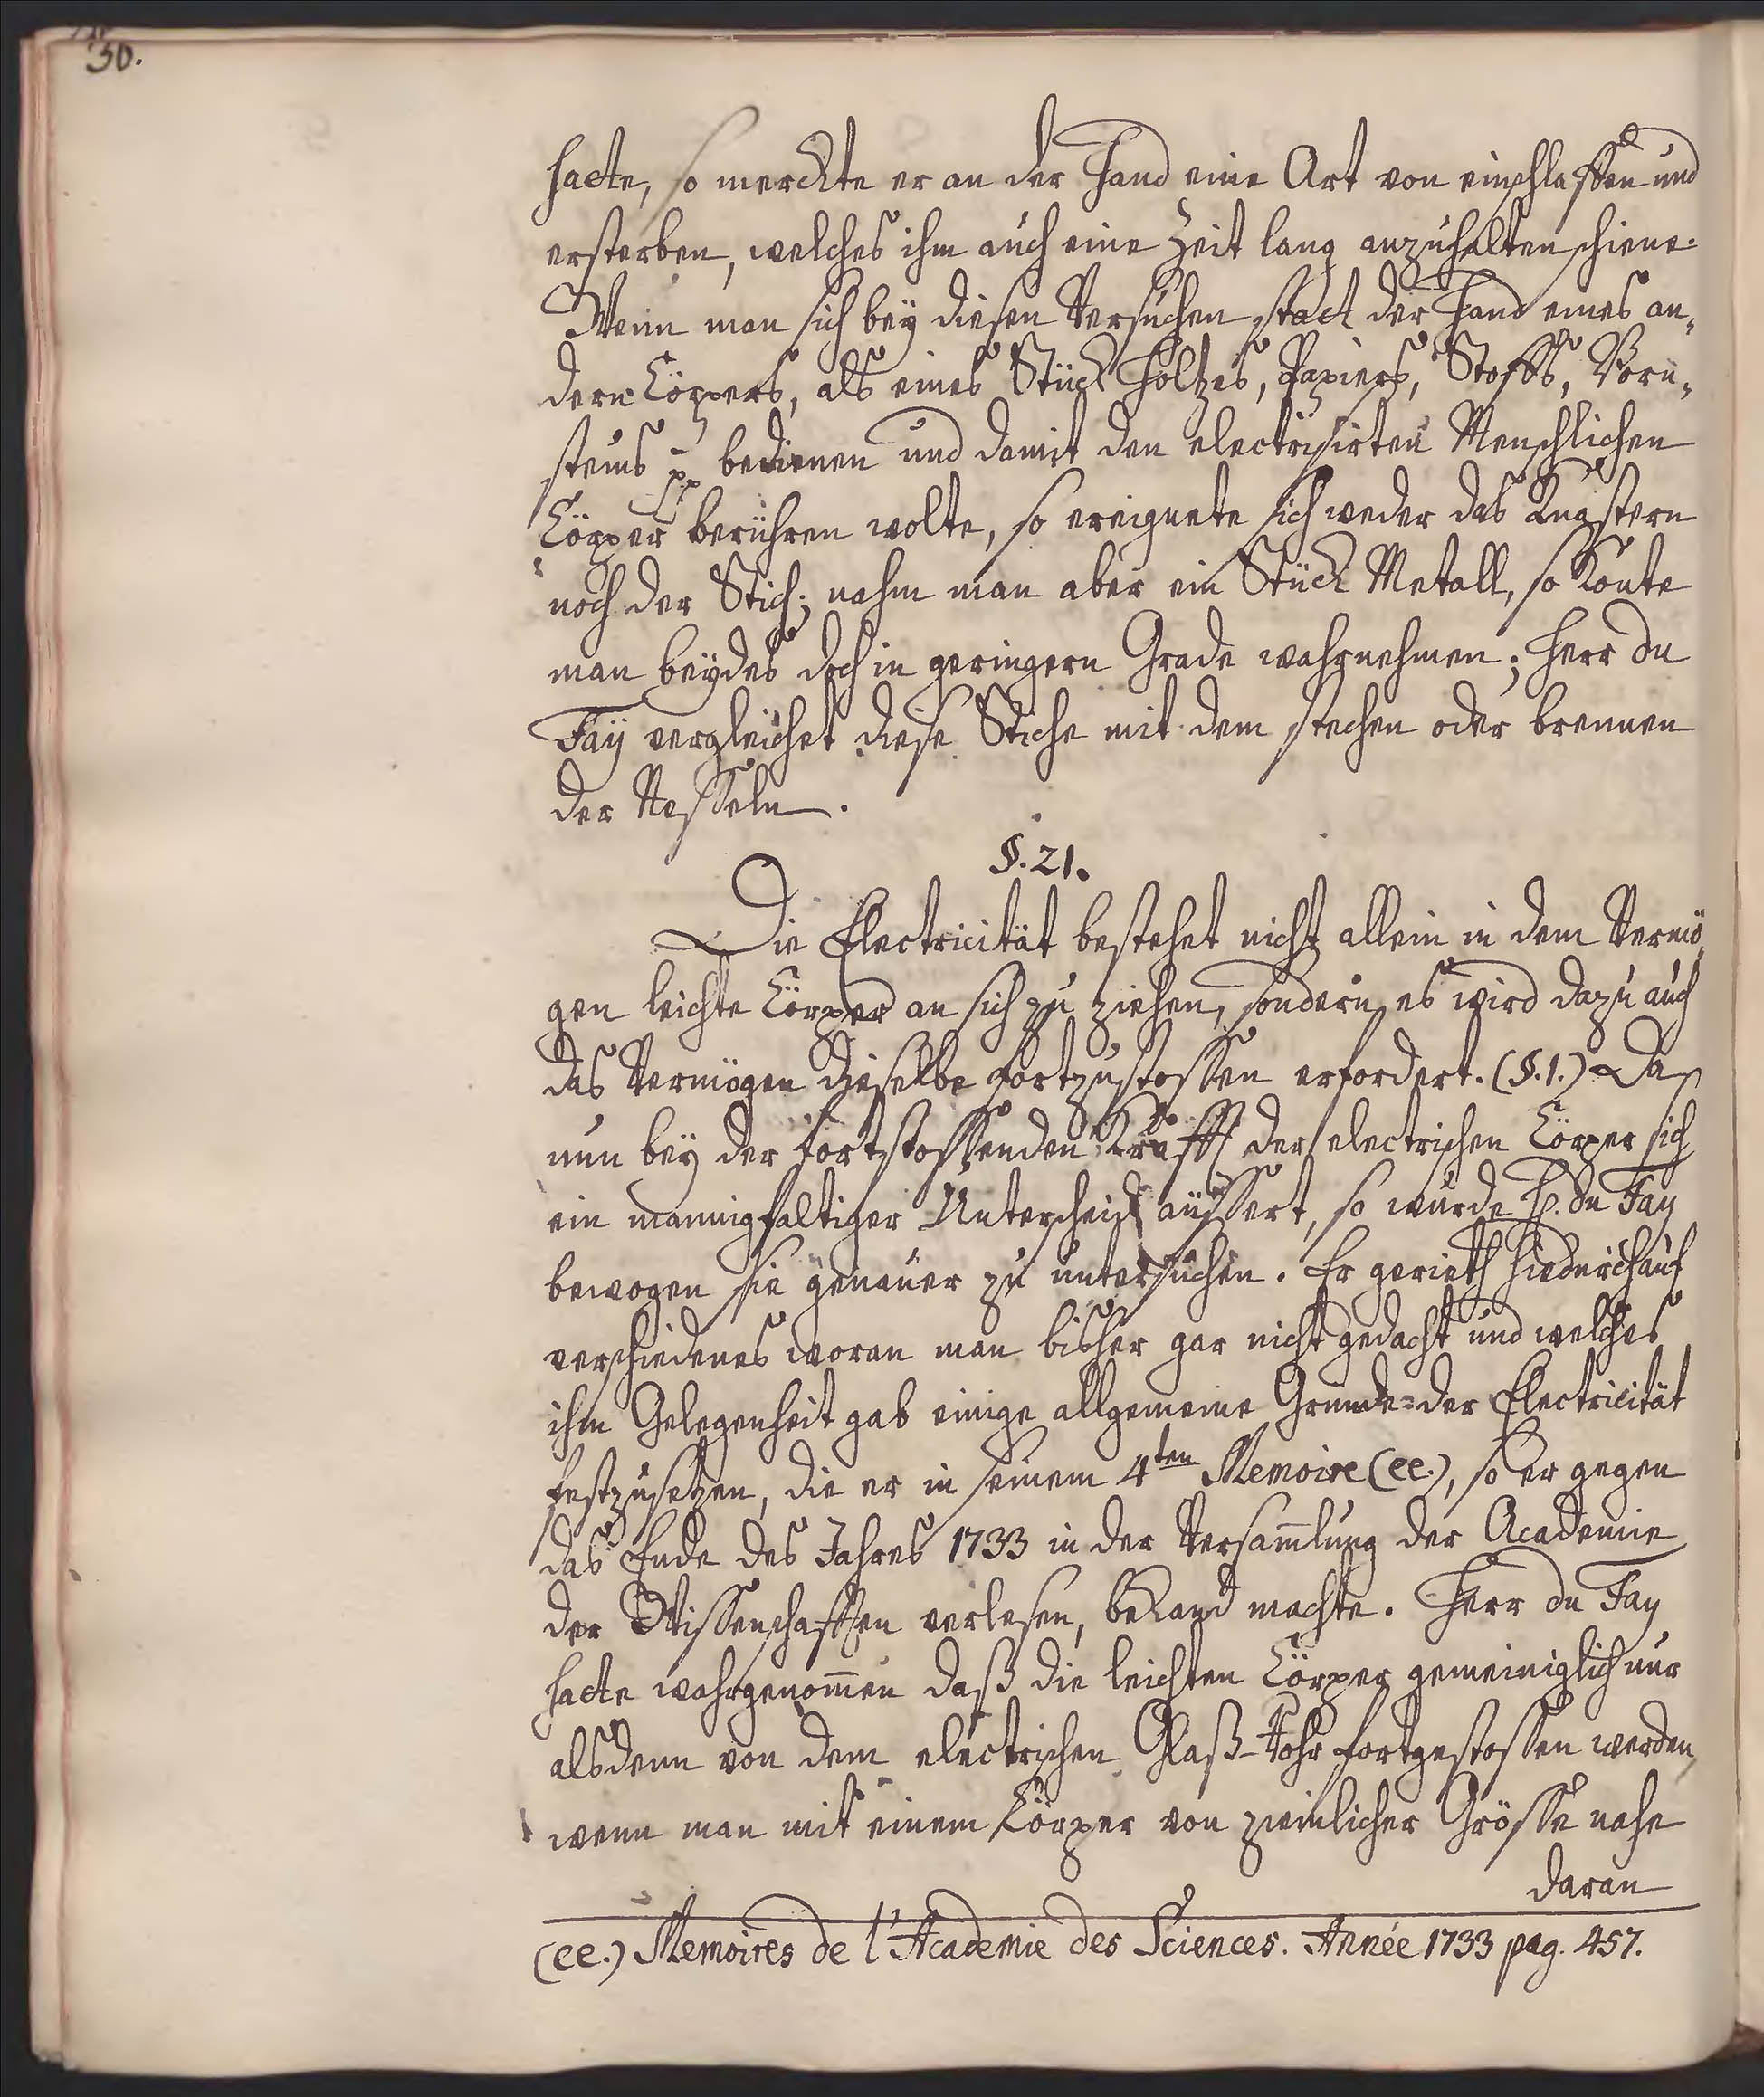 30.
hatte, so merckte er an der Hand eine Art von einschlaffen und
ersterben, welches ihm auch eine Zeit lang anzuhalten schiene.
Wenn man sich bey diesen Versuchen statt der Hand eines an„
dern Cörpers, als eines Stück Holtzes, Papiers, Stoffs, Börn„
steins pp bedienen und damit den electrisirten Menschlichen
Cörper berühren wolte, so ereignete sich weder das Knastern
noch der Stich; nahm man aber ein Stück Metall, so konte
man beydes doch in geringern Grade wahrnehmen; Herr du
Faÿ vergleichet diese Stiche mit dem stechen oder brennen
der Nesseln.
§. 21.
Die Electricität bestehet nicht allein in dem Vermö„
gen leichte Cörper an sich zu ziehen, sondern es wird dazu auch
das Vermögen dieselbe fortzustossen erfordert. (§. 1.) Da
nun bey der fortstossenden Krafft der electrischen Cörper sich
ein mannigfaltiger Unterscheid äussert, so wurde H. du Fay
bewogen sie genauer zu untersuchen. Er gerieth hiedurch auf
verschiedenes woran man bisher gar nicht gedacht und welches
ihm Gelegenheit gab einige allgemeine Gründe der Electricität
festzusetzen, die er in seinem 4ten Memoire (ee.), so er gegen
das Ende des Jahres 1733 in der Versam̄lung der Academie
der Wissenschafften verlesen, bekand machte. Herr du Fay
hatte wahrgenom̄en daß die leichten Cörper gemeiniglich nur
alsdenn von dem electrischen Glaß-Rohr fortgestossen werden,
wenn man mit einem Cörper von ziemlicher Grösse nahe
daran
(ee.) Memoires de l'Academie des Sciences. Année 1733 pag. 457.